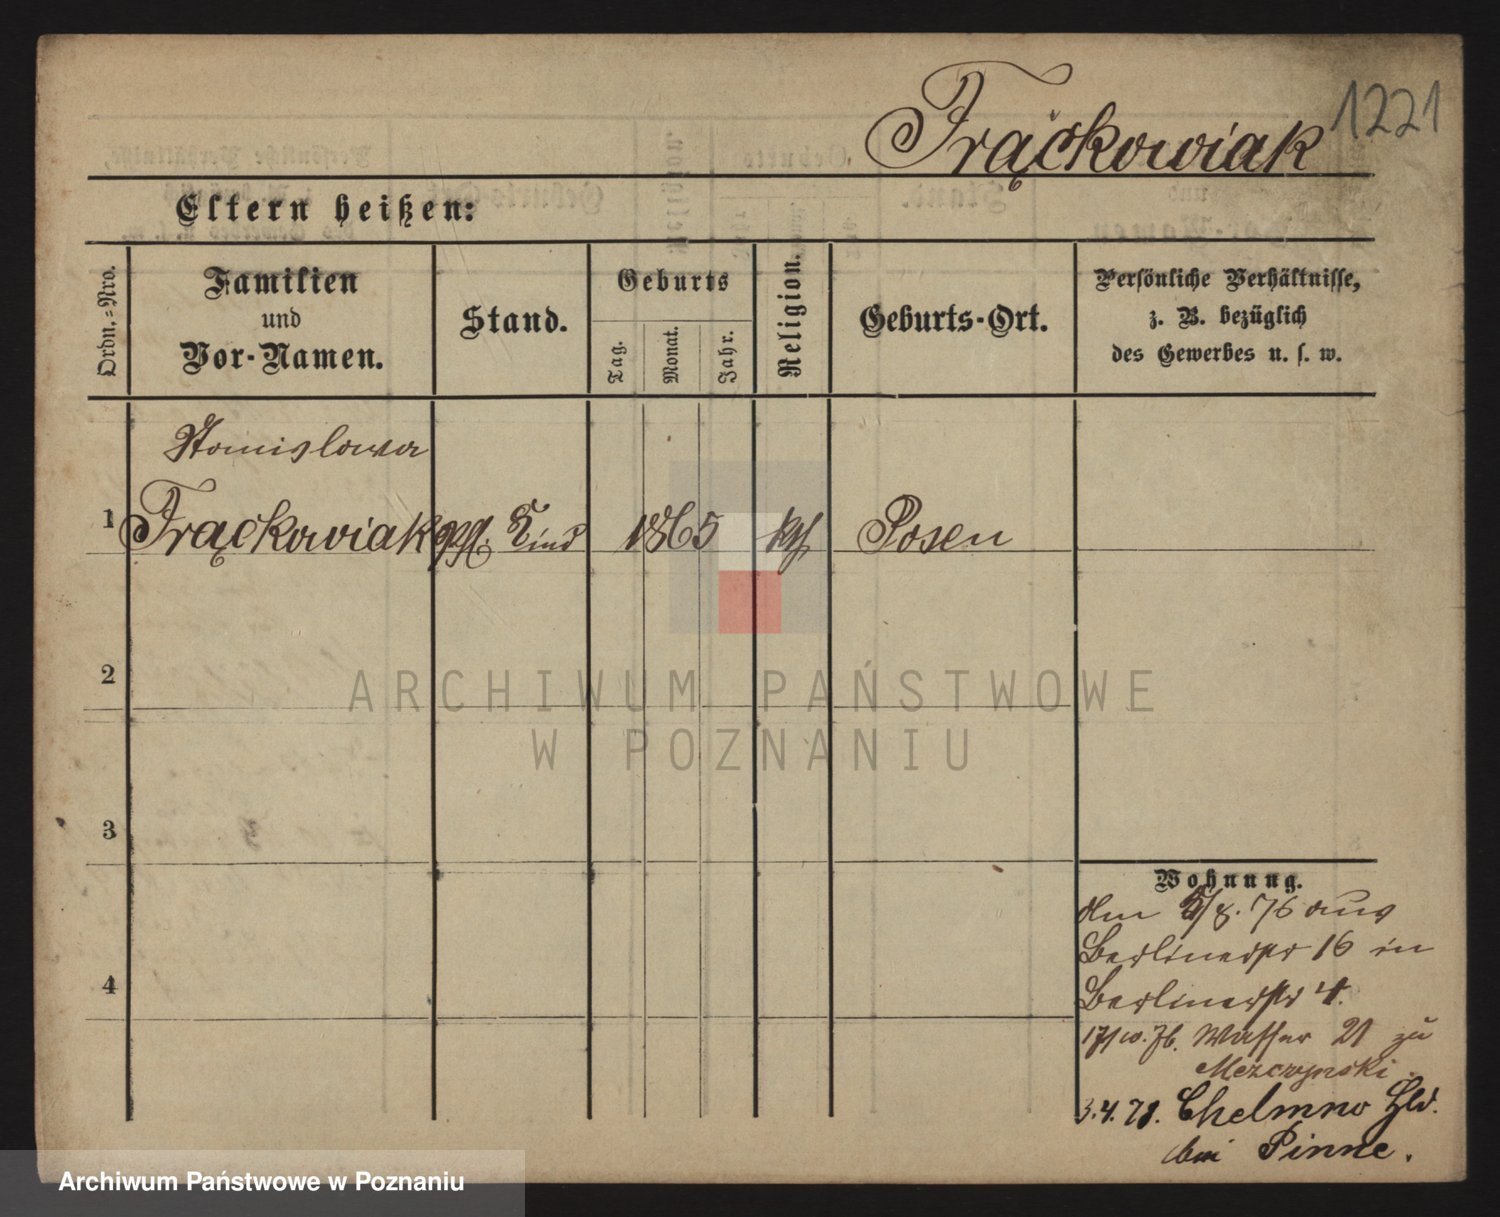 1221
Frąckowiak
Eltern heißen:
Ordn.=Nro.
Familien
und
Vor-Namen.
Stand.
Geburts
Tag.
Monat.
Jahr.
Religion.
Geburts-Ort.
Persönliche Verhältnisse,
z. B. bezüglich
des Gewerbes u. s. w.
Stanislawa
1 Frąckowiak Kind 1865 kth Posen
2
ARCHIWUM PAŃSTWOWE
W POZNANIU
3
Wohnung.
Am 5/8. 76 aus
Berlinerstr 16 in
4
Berlinerstr 4.
Wasser 21 zu
Mezczynski
3.4.78. Chelmno Hld.
bei Pinne.
Archiwum Państwowe w Poznaniu